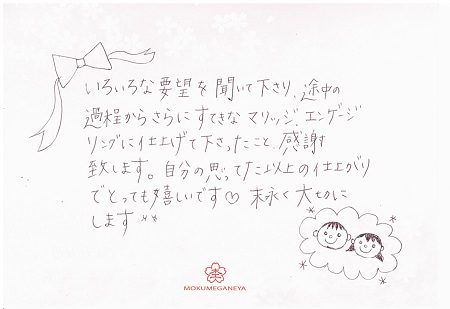 いろいろな要望を聞いて下さり、途中の
過程からさらにすてきなマリッジ、エンゲージ
リングに仕上げて下さったこと、感謝
致します。自分の思ってた以上の仕上がり
でとっても嬉しいです♡ 末永く大切に
します
MOKUMEGANEYA